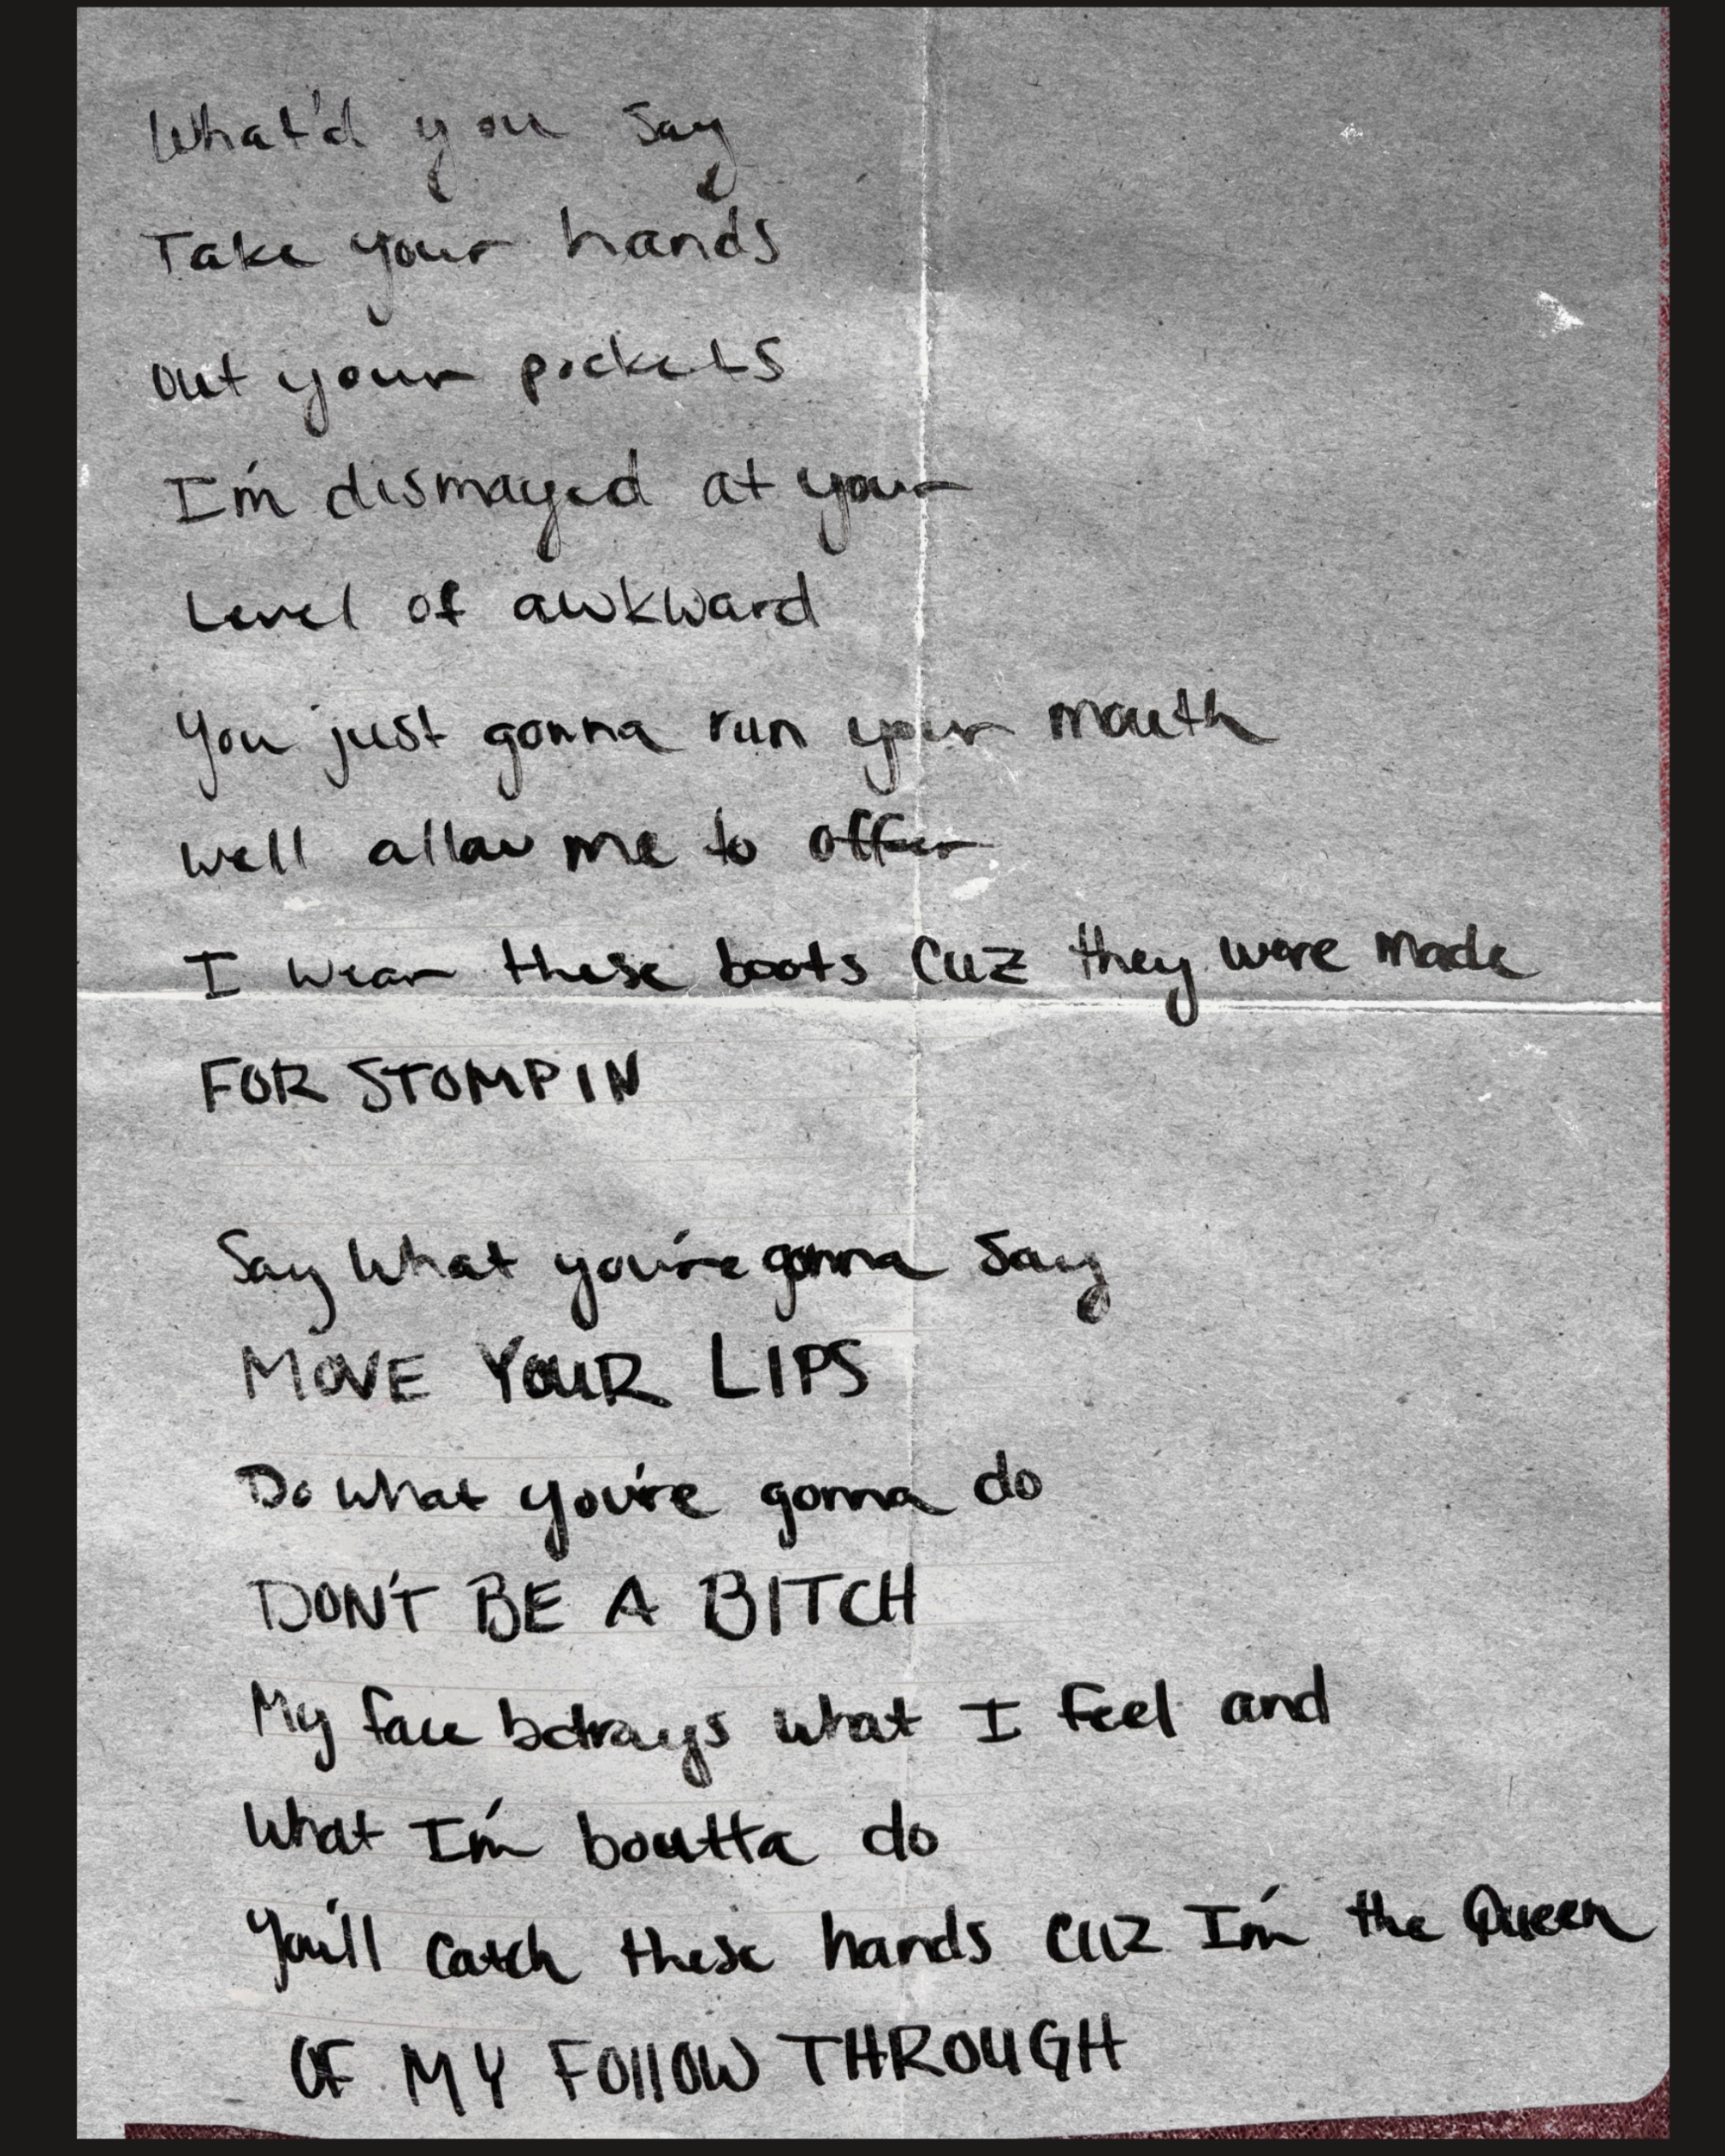 What'd you say
Take your hands
out your pockets
I'm dismayed at your
Level of awkward
You just gonna run your mouth
Well allow me to offer
I wear these boots cuz they were made
FOR STOMPIN
Say What you're gonna say
MOVE YOUR LIPS
Do what you're gonna do
DON'T BE A BITCH
My face betrays what I feel and
What I'm boutta do
You'll catch these hands cuz I'm the Queen
OF MY FOllOW THROUGH